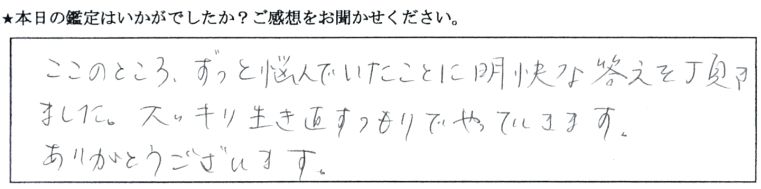 ★本日の鑑定はいかがでしたか？ご感想をお聞かせください。
ここのところ、ずっと悩んでいたことに明快な答えを頂き
ました。スッキリ生き直すつもりでやっていきます。
ありがとうございます。